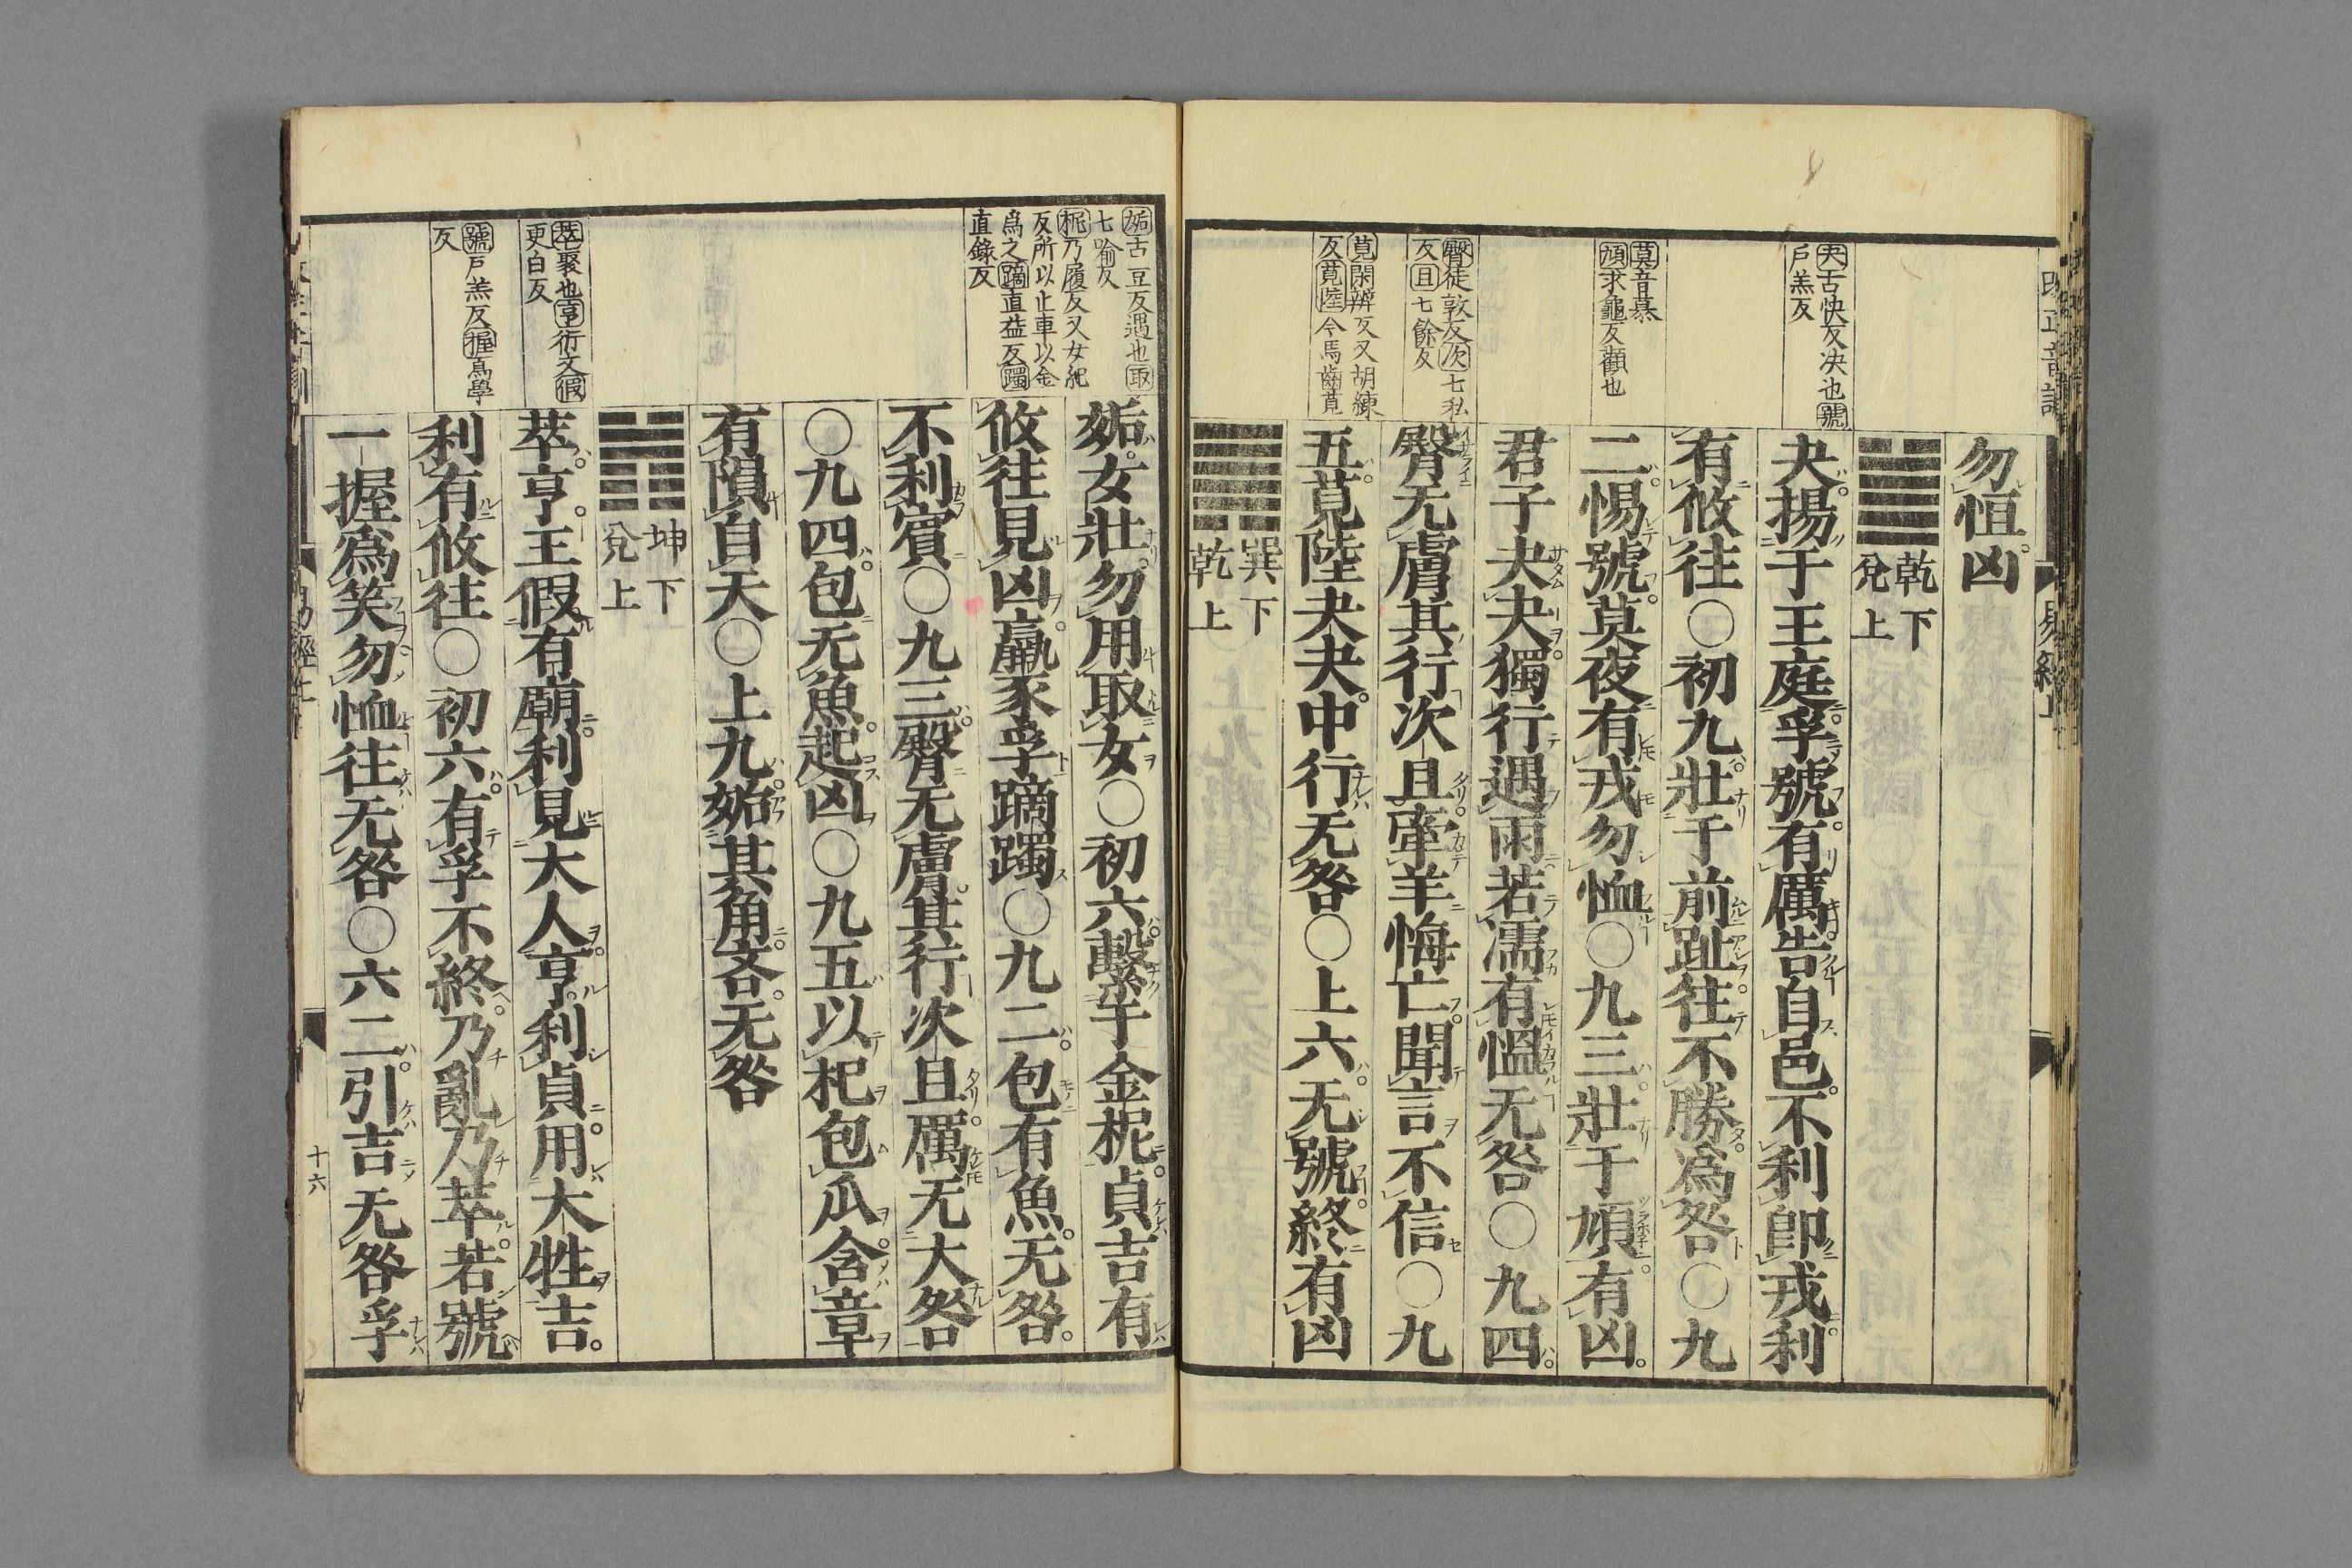 夬古快反决也號
戶羔反
莫音慕
頄求龜反顴也
臀徒敦反次七私
反且七餘反
莧閑辨反又胡練
反莧陸今馬齒莧
勿恒凶
乾下
兌上
夬揚于王庭孚號有厲告自邑不利卽戎利
有攸往○初九壯于前趾往不勝爲咎○九
二惕號莫夜有戎勿恤○九三壯于頄有凶
君子夬夬獨行遇雨若濡有慍无咎○九四
臀无膚其行次且牽羊悔亡聞言不信○九
五莧陸夬夬中行无咎○上六无號終有凶
巽下
乾上
姤古豆反遇也取
七喻反
柅乃履反又女紀
反所以止車以金
爲之蹢直益反躅
直錄反
萃聚也亨術文假
更白反
號戶羔反握烏學
反
姤女壯勿用取女○初六繫于金柅貞吉有
攸往見凶羸豕孚蹢躅○九二包有魚无咎
不利賓○九三臀无膚其行次且厲无大咎
○九四包无魚起凶○九五以杞包瓜含章
有隕自天○上九姤其角吝无咎
坤下
兌上
萃亨王假有廟利見大人亨利貞用大牲吉
利有攸往○初六有孚不終乃亂乃萃若號
一握爲笑勿恤往无咎○六二引吉无咎孚
十六